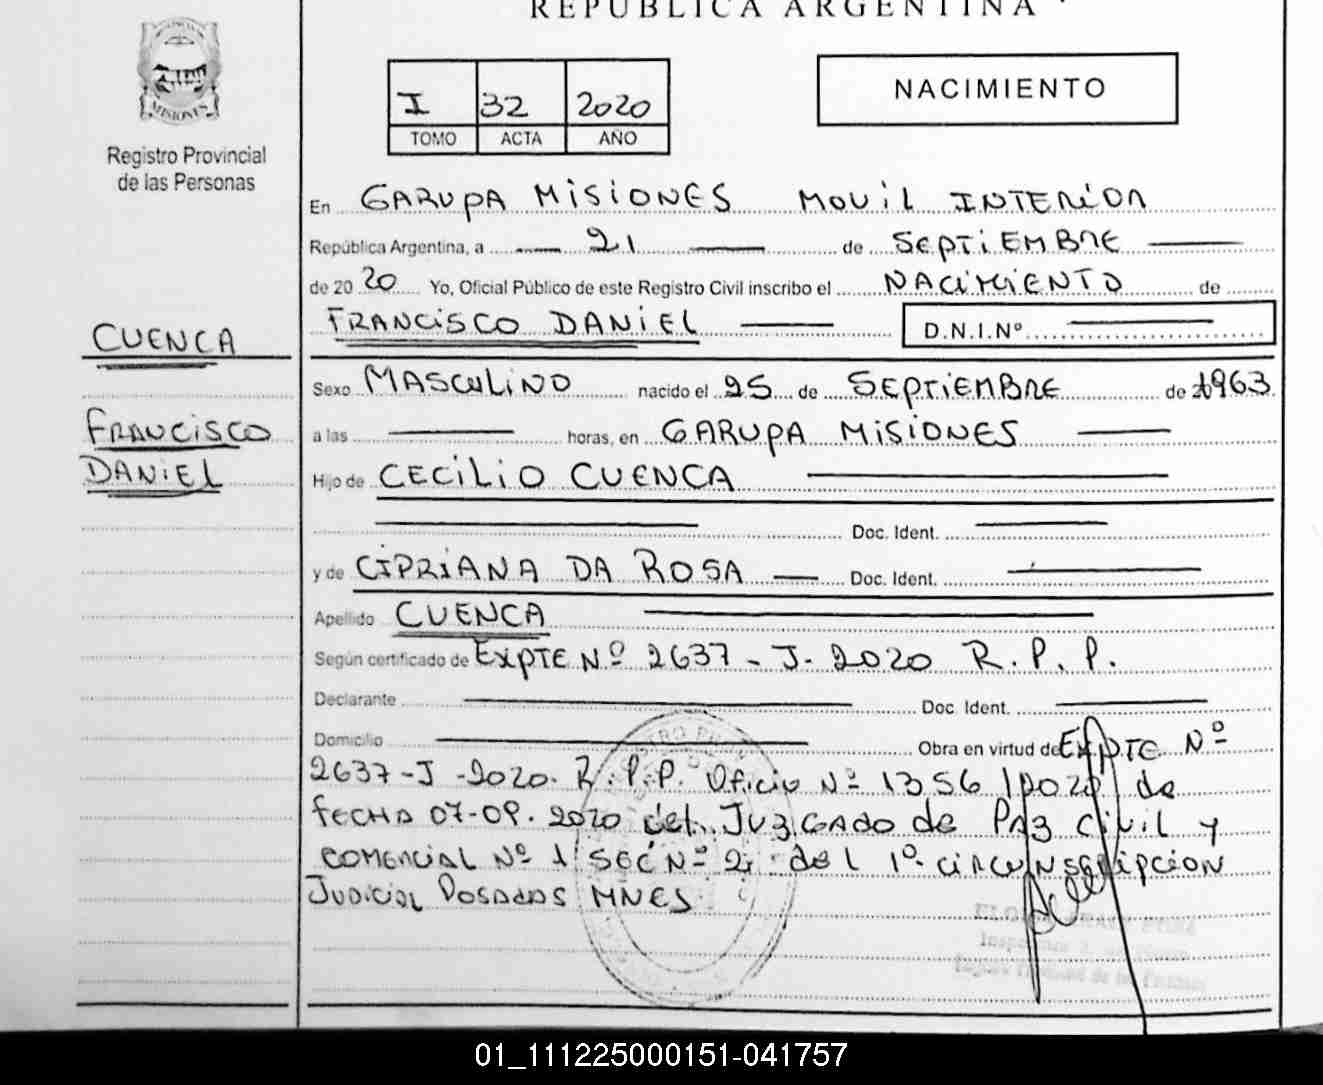 REPUBLICA ARGENTINA
MISIONES
Registro Provincial
de las Personas
I 32 2020
TOMO ACTA AÑO
NACIMIENTO
En GARUPA MISIONES MOVIL INTERIOR
República Argentina, a 21 de SEPTIEMBRE
de 20 20 Yo, Oficial Público de este Registro Civil inscribo el NACIMIENTO de
FRANCISCO DANIEL D.N.I.Nº
CUENCA
FRANCISCO
DANIEL
Sexo MASCULINO nacido el 25 de SEPTIEMBRE de 1963
a las horas, en GARUPA MISIONES
Hijo de CECILIO CUENCA
Doc. Ident.
y de CIPRIANA DA ROSA Doc. Ident.
Apellido CUENCA
Según certificado de EXPTE Nº 2637-J-2020 R.P.P.
Declarante Doc. Ident.
Domicilio Obra en virtud de EXPTE Nº
2637-J-2020. R.P.P. Oficio Nº 1356/2020 de
FECHA 07-09-2020 del JUZGADO de PAZ CIVIL y
COMERCIAL Nº 1 SEC Nº 2, del 1º CIRCUNSCRIPCION
JUDICIAL POSADAS MNES
01_111225000151-041757